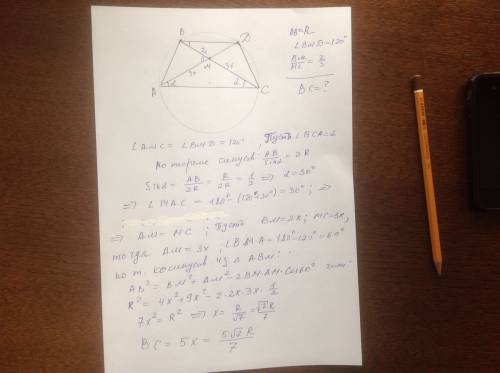 B
D
2x
M
3x
3x
A
2
2
C
AB=R
∠BMD=120°
BM/MC = 2/3
BC=?
∠AMC = ∠BMD=120°, Пусть ∠BCA=α
по теореме синусов: AB/sinα = 2R
Sinα = AB/2R = R/2R = 1/2 ⇒ α=30°
⇒ ∠MAC = 180°-(120°+30°)=30°; ⇒
⇒ AM=MC; Пусть BM=2x; MC=3x,
тогда AM=3x, ∠BMA=180°-120°=60°
по т. косинусов из Δ ABM:
AB²= BM²+AM²-2BM·AM·Cos60°
R²= 4x²+9x²-2·2x·3x·1/2
7x²=R² ⇒ x= R/√7 = √7R/7
BC = 5x = 5√7R/7